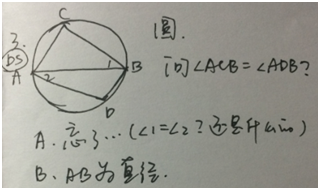 3.
DS
C
A
B
D
1
2
圆.
问∠ACB=∠ADB?
A. 忘了...(∠1=∠2?还是什么的)
B. AB为直径.